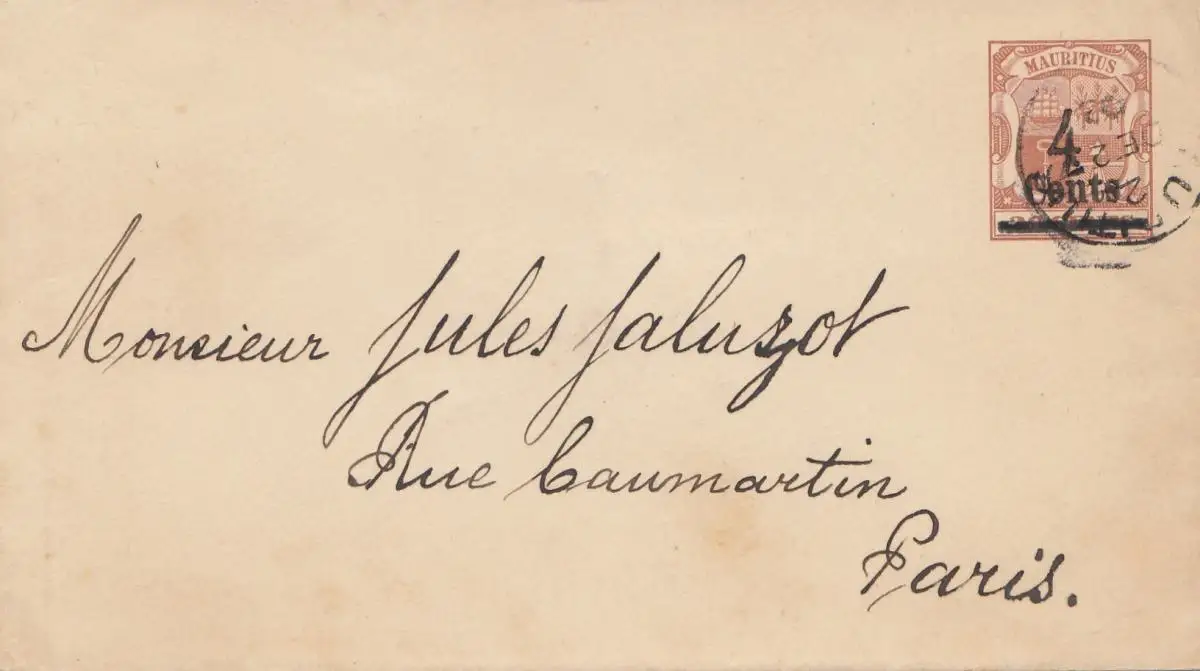 MAURITIUS
4
Cents
Monsieur Jules Jaluzot
Rue Caumartin
Paris.